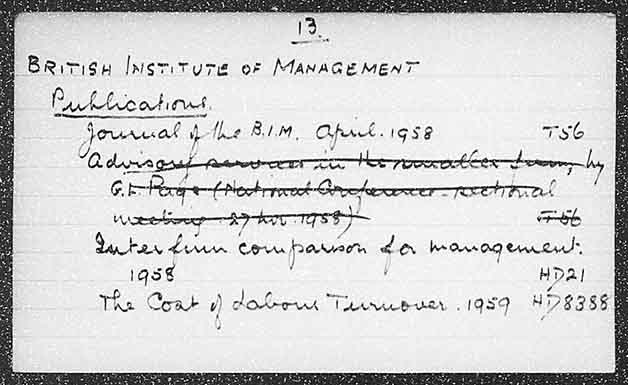 13.
BRITISH INSTITUTE OF MANAGEMENT
Publications.
Journal of the B.I.M. April. 1958 T56
Advisory services in the smaller firm, by
G.L. Page (National Conference sectional
meeting 27 Nov. 1958) T56
Inter firm comparison for management.
1958 HD21
The Cost of Labour Turnover. 1959 HD8388